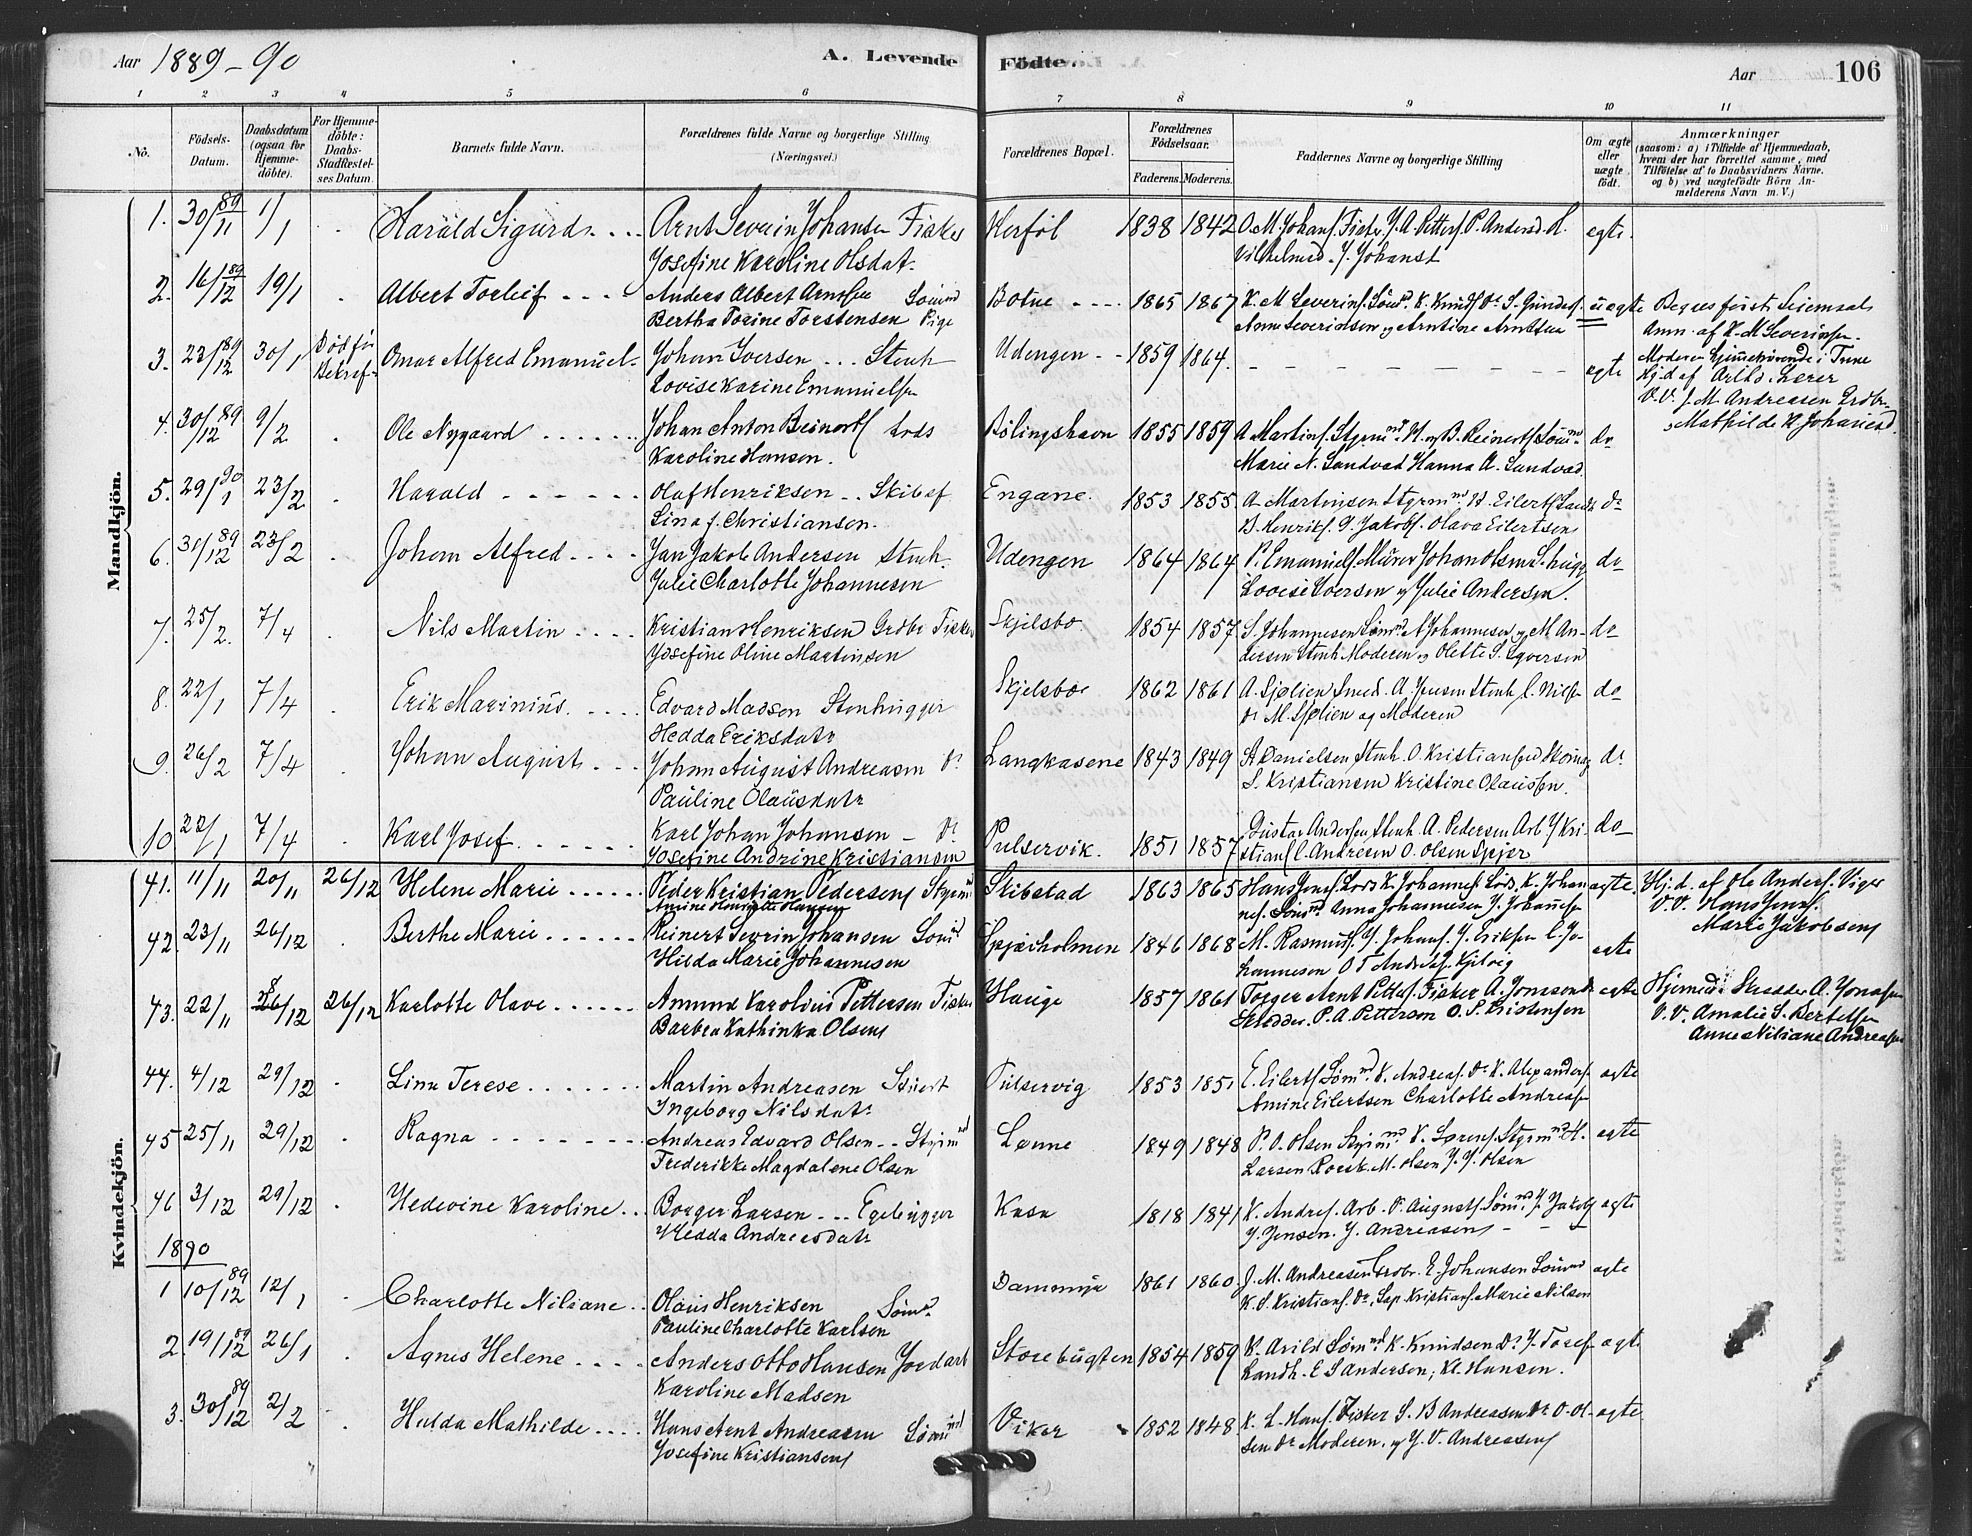 Aar 1889-90 A. Levende Födte. Aar 106
1 2 3 4 5 6 7 8 9 10 11
No. Födsels-Datum. Daabsdatum (ogsaa for Hjemmedöbte). For Hjemmedöbte: Daabs-Stadfestelses Datum. Barnets fulde Navn. Forældrenes fulde Navne og borgerlige Stilling (Næringsvei.) Forældrenes Bopæl. Forældrenes Födselsaar. Faderens. Moderens. Faddernes Navne og borgerlige Stilling Om ægte eller uægte födt. Anmærkninger (saasom: a) i Tilfælde af Hjemmedaab, hvem der har forrettet samme, med Tilföielse af to Daabsvidners Navne. og b) ved uægtefödte Börn Anmelderens Navn m. V.)
Mandkjön.
1. 30/11 89 1/1 Harald Sigurd Arnt Severin Johansen Fisker Kerföl 1838 1842 O. M. Johans. Fisker J. A. Petters. P. Andersd. H. egte.
Josefine Karoline Olsdat. Vilhelmsd. J. Johanst
2. 16/12 89 19/1 Albert Torleif Anders Albert Arntsen Sömd Botne 1865 1867 K. M. Severins. Sömd. K. Knuds. Do S. Gunders. uegte
Bertha Torine Torstensen Pige Anne Severinsen og Arntine Arntsen Anm. af K. M. Severinsen.
3. 22/12 89 30/1 Omar Alfred Emanuel Johan Iversen Stenh Udengen 1859 1864. egte Moderen hjemmehörende i Tune
Lovise Karine Emanuelsen Hj. d. af
V. V. J. M. Andreasen Grdbr.
4. 30/12 89 9/2 Ole Nygaard Johan Anton Reinerts Lods Bölingshavn 1855 1859 A Martins. Styrmnd. H. og B. Reinerts Sömnd. do Mathilde H Johansd.
Karoline Hansen. Marie N. Sandvad Hanna A. Sandvad
5. 29/1 90 23/2 Harald Olaf Henriksen Skibsf Engane. 1853 1855 A Martinsen Styrmnd. H. Eilerts do
Lina f. Christiansen. B. Henriks. J. Jakobs. Olava Eilertsen
6. 31/12 89 23/2 Johan Alfred Jan Jakob Andersen Stenh. Udengen 1864 1864 P. Emanuels. Murer Johan Olsen do
Julie Charlotte Johannesen Lovise Iversen og Julie Andersen.
7. 25/2 7/4 Nils Martin Kristian Henriksen Grdbr Fisker Skjelsbo 1854 1857 S. Johannesen Sömnd A Johannesen og M. An- do
Josefine Oline Martinsen dersen Stenh Moderen og Olette S. Syversen
8. 22/1 7/4 Erik Marinius. Edvard Madsen Stenhugger Skjelsbo 1862 1861 A. Sjölien Smed. A. Jensen Stenh C. Nilsen do
Hedda Eriksdatr do M. Sjölien og Moderen
9. 26/2 7/4 Johan August Johan August Andreasen do Langkasene 1843 1849 A Danielsen Stenh. O Kristiansen Skomag do
Pauline Olausdatr S. Kristiansen Kristine Olaussen.
10 22/1 7/4 Karl Josef. Karl Johan Johansen do Pulservik. 1851 1857 Gustav Andersen Stenh A. Pedersen Arb J Kri- do
Josefine Andrine Kristiansen stians. C. Andresen O. Olsen Spjer
Kvindekjön.
41. 11/11 20/11 26/12 Helene Marie Peder Kristian Pedersen Styrmd Skibstad 1863 1865 Hans Jens. Lods K. Johannes. Lods. K. Johan egte. Hj. d. af Ole Anders. Viger
Amine Henriette Hansen nes. Sömnd. Anna Johannesen J. Johannesen V. V. Hans Jens.
42. 23/11 26/12 Berthe Marie Reinert Sevrin Johansen Sömd Spjærholmen 1846 1868 M. Rasmus. J. Johans. J. Eriksen C. Jo- egte Marie Jakobsen
Hilda Marie Johannesen hannesen O T Andreas. Kjelvig
43. 22/11 26/12 8 26/12 Karlotte Olave Amund Karolius Pettersen Fisker Hauge 1857 1861 Torger Arnt Petters. Fisker A. Jonassen egte Hjemmed. Skrædder A. Jonasen
Barbra Kathinka Olsen Skrædder. P. A. Petterson O. S. Kristensen V. V. Amalie S. Bertelsen
Anne Niliane Andreasen
44. 4/12 29/12 Lina Terese Martin Andreasen Stuert Pulservig 1853 1851 E. Eilerts Sömnd. K. Andreas. Do K. Alexanders. egte
Ingeborg Nilsdatr Amine Eilertsen Charlotte Andreasen
45 25/11 29/12 Ragna Andreas Edvard Olsen Styrmnd Lønne 1849 1848 P. O. Olsen Styrmnd. K. Sörens. Styrmnd H. egte
Frederikke Magdalene Olsen Larsen Rorsk. M. Olsen J. J. Olsen
46 3/12 29/12 Hedevine Karoline Borger Larsen Egebygger Kasa 1818 1841 K. Andres. Arb. P. Augusts. Sömnd. J. Jakobs egte
Hedda Andreasdatr J. Jensen. J. Andreasen
1890
1 10/12 89 12/1 Charlotte Niliane Olaus Henriksen Sömd. Dammyr 1861 1860 J. M. Andreasen Grdbr. E. Johansen Sömnd egte
Pauline Charlotte Karlsen K. S. Kristians. Do, Sap. Kristians. Marie Nilsen
2. 19/12 89 26/1 Agnes Helene Anders Otto Hansen Jordarb Storebugten 1854 1859 K. Arild Sömnd K. Knudsen Do J. Tores. egte
Karoline Madsen Landh. E S Andersen, Kl. Hansen.
3. 30/12 89 2/2 Hulda Mathilde Hans Arnt Andreasen Sömnd Viker 1852 1848 K. L. Hans. Fisker S. B Andreasen Do O. Ol- egte
Josefine Kristiansen sen Do Moderen. og J. V. Andreasen